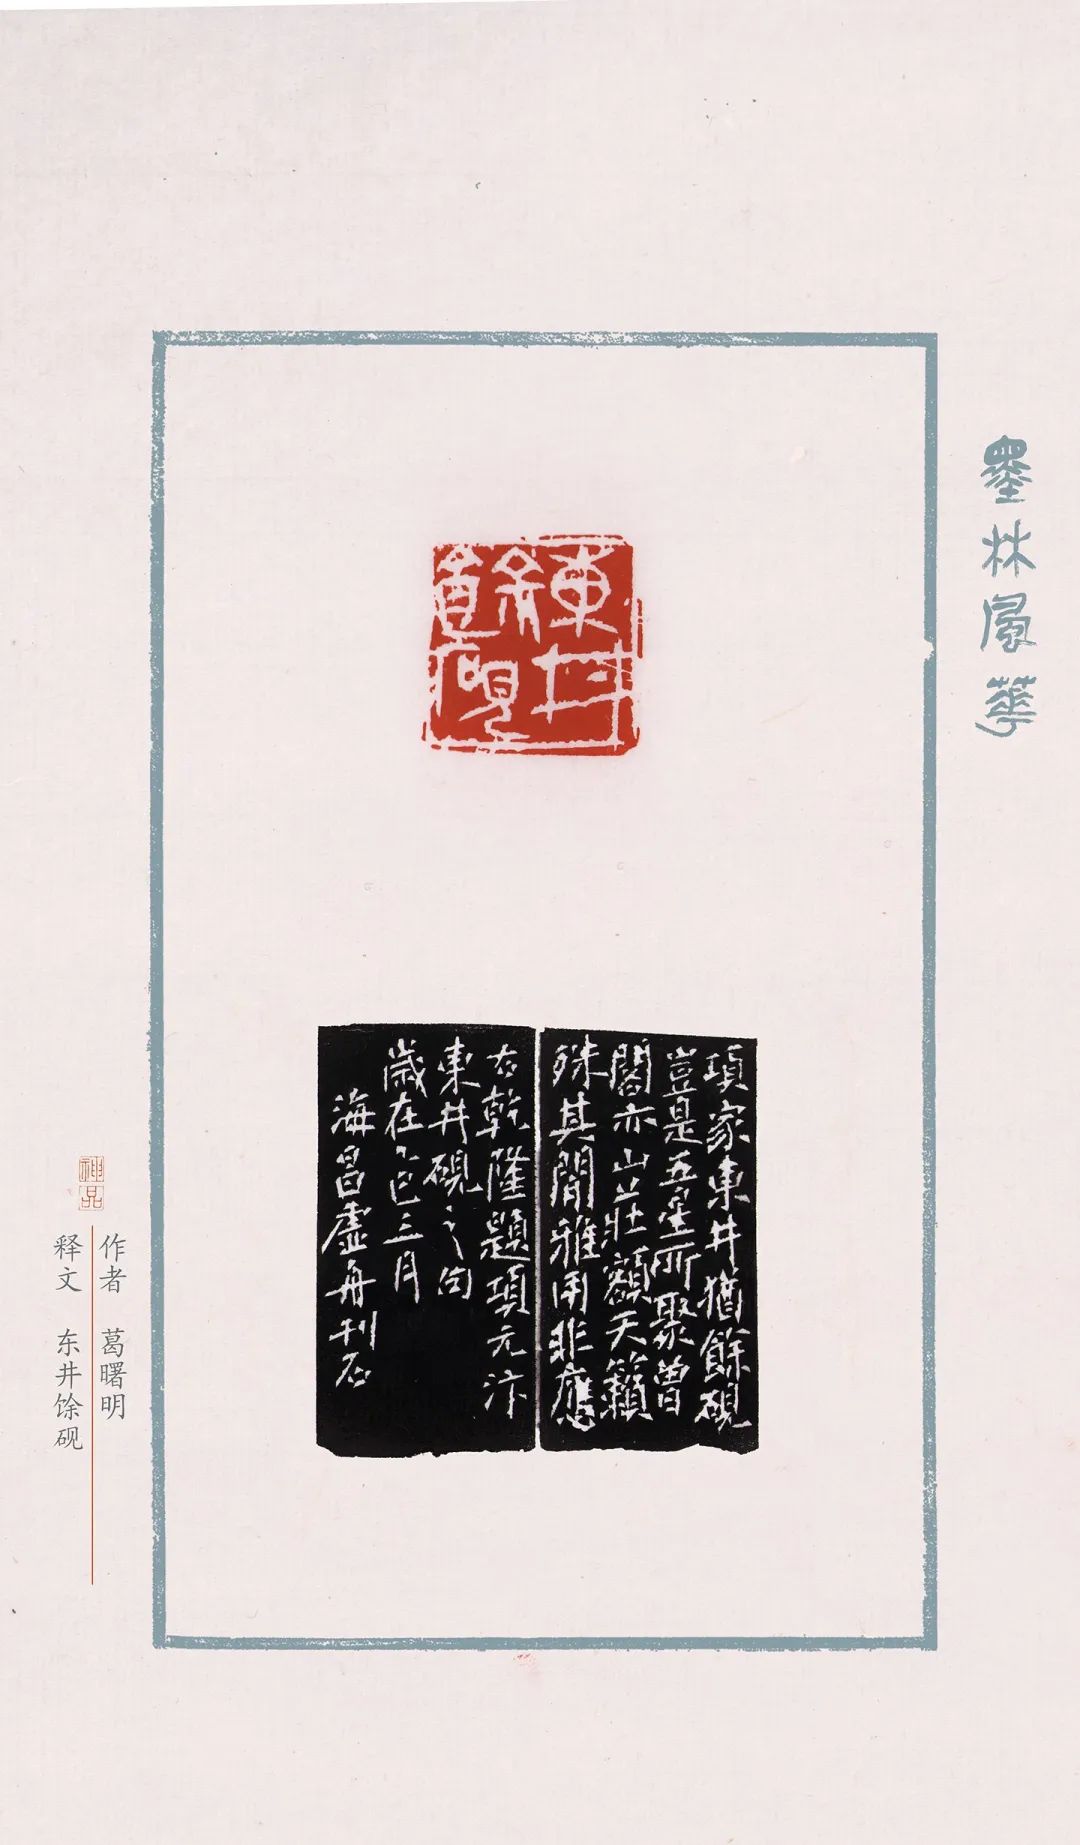 墨林風華
東井
餘硯
項家東井猶餘硯
豈是五星所聚曽
閣亦山莊額天籟
殊其閒雅用非應
右乾隆題項元汴
東井硯之句
歲在乙巳三月
海昌虛舟刊石
神品
作者 葛曙明
释文 东井馀砚